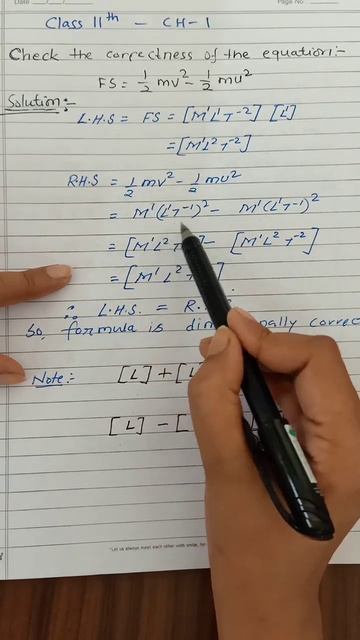 Date
Page No.
Class 11th - CH-1
Check the correctness of the equation:-
FS = 1/2 mv² - 1/2 mu²
Solution:-
L.H.S = FS = [M¹L¹T⁻²] [L¹]
= [M¹L²T⁻²]
R.H.S = 1/2 mv² - 1/2 mu²
= M¹(L¹T⁻¹)² - M¹(L¹T⁻¹)²
= [M¹L² - [M¹L²T⁻²]
= [M¹L²
∴ L.H.S. = R.
So, formula is correct
Note:- [L] + [L
[L] - [
"Let us always meet each other with smile, for